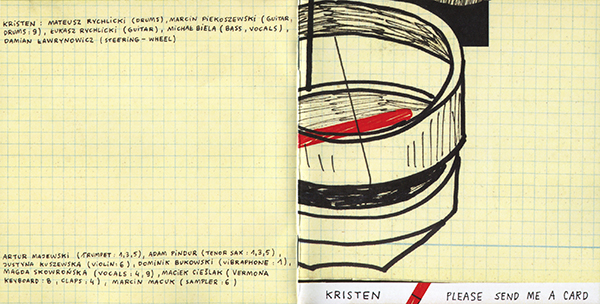 KRISTEN : MATEUSZ RYCHLICKI (DRUMS), MARCIN PIEKOSZEWSKI (GUITAR,
DRUMS: 9), ŁUKASZ RYCHLICKI (GUITAR), MICHAŁ BIELA (BASS, VOCALS),
DAMIAN ŁAWRYNOWICZ (STEERING-WHEEL)
ARTUR MAJEWSKI (TRUMPET: 1,3,5), ADAM PINDUR (TENOR SAX: 1,3,5),
JUSTYNA KUSZEWSKA (VIOLIN: 6), DOMINIK BUKOWSKI (VIBRAPHONE: 1),
MAGDA SKOWROŃSKA (VOCALS: 4, 9), MACIEK CIEŚLAK (VERMONA
KEYBOARD: 8, CLAPS: 4), MARCIN MACUK (SAMPLER: 6)
KRISTEN PLEASE SEND ME A CARD